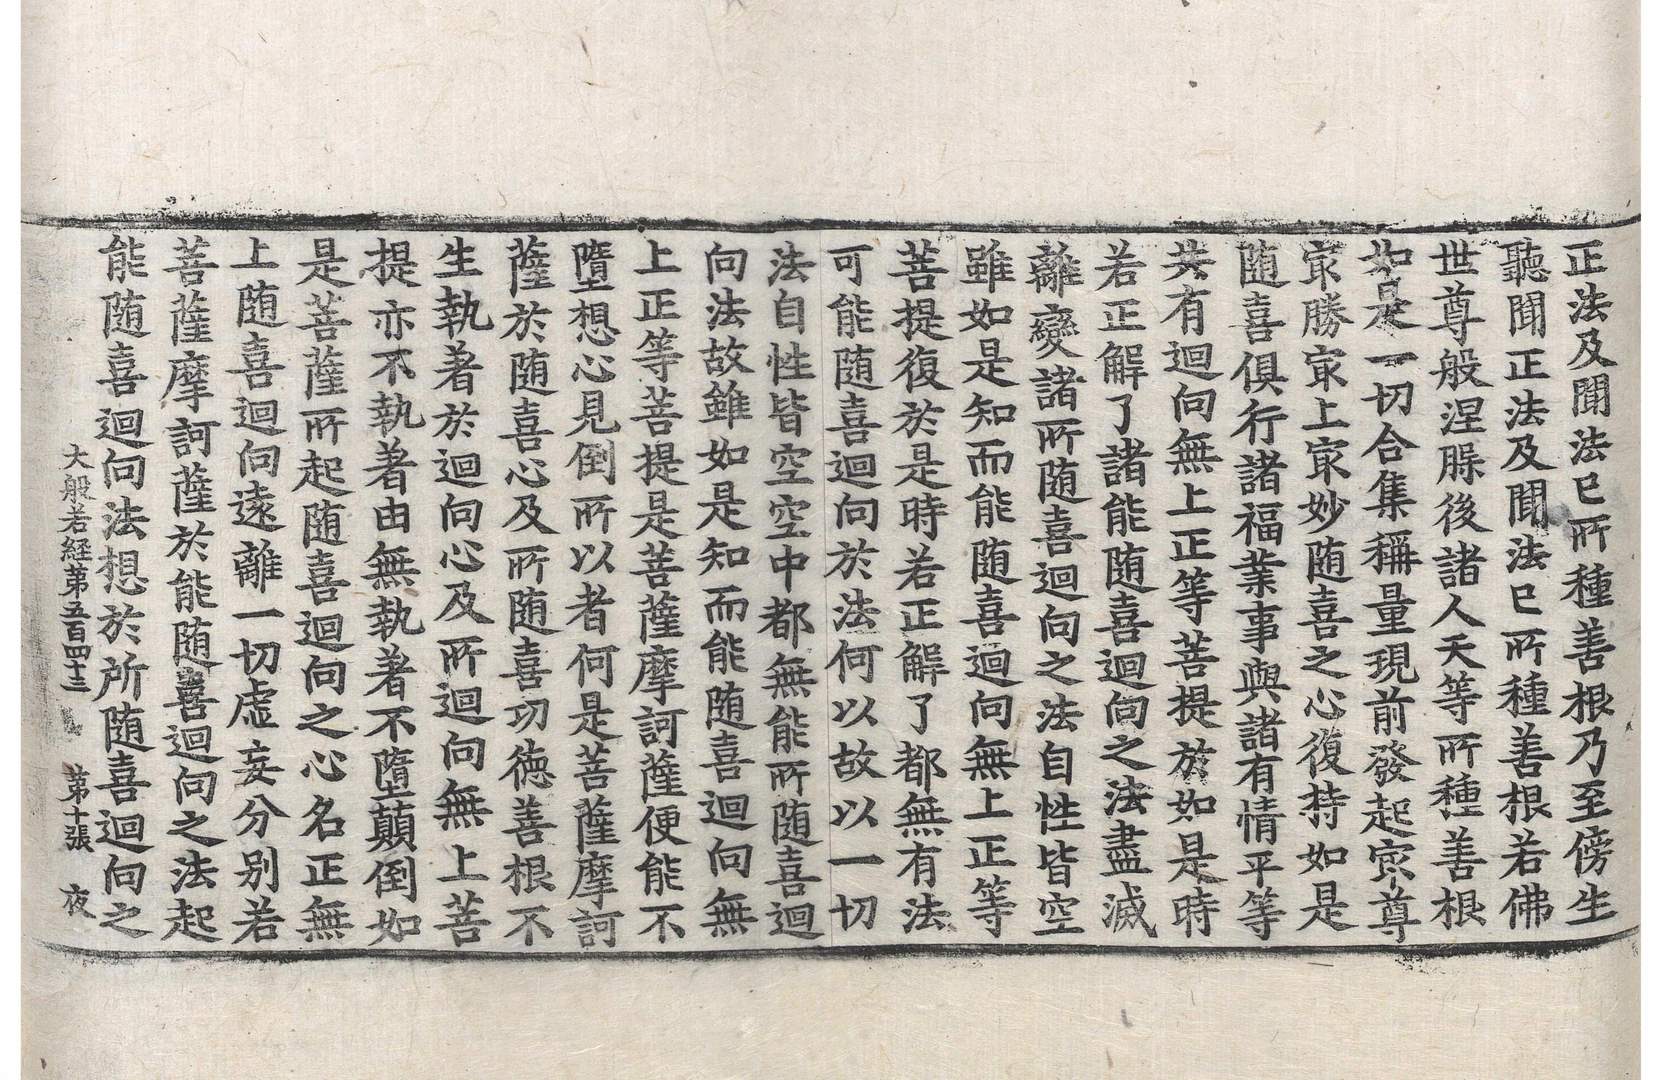 正法及聞法已所種善根乃至傍生
聽聞正法及聞法已所種善根若佛
世尊般涅槃後諸人天等所種善根
如是一切合集稱量現前發起㝡尊
㝡勝㝡上㝡妙随喜之心復持如是
随喜俱行諸福業事與諸有情平等
共有迴向無上正等菩提於如是時
若正解了諸能随喜迴向之法盡滅
離變諸所随喜迴向之法自性皆空
雖如是知而能随喜迴向無上正等
菩提復於是時若正解了都無有法
可能随喜迴向於法何以故以一切
法自性皆空空中都無能所随喜迴
向法故雖如是知而能随喜迴向無
上正等菩提是菩薩摩訶薩便能不
墮想心見倒所以者何是菩薩摩訶
薩於随喜心及所随喜功德善根不
生執著於迴向心及所迴向無上菩
提亦不執著由無執著不墮顛倒如
是菩薩所起随喜迴向之心名正無
上随喜迴向遠離一切虛妄分別若
菩薩摩訶薩於能随喜迴向之法起
能随喜迴向法想於所随喜迴向之
大般若経第五百四十三 第十張 夜